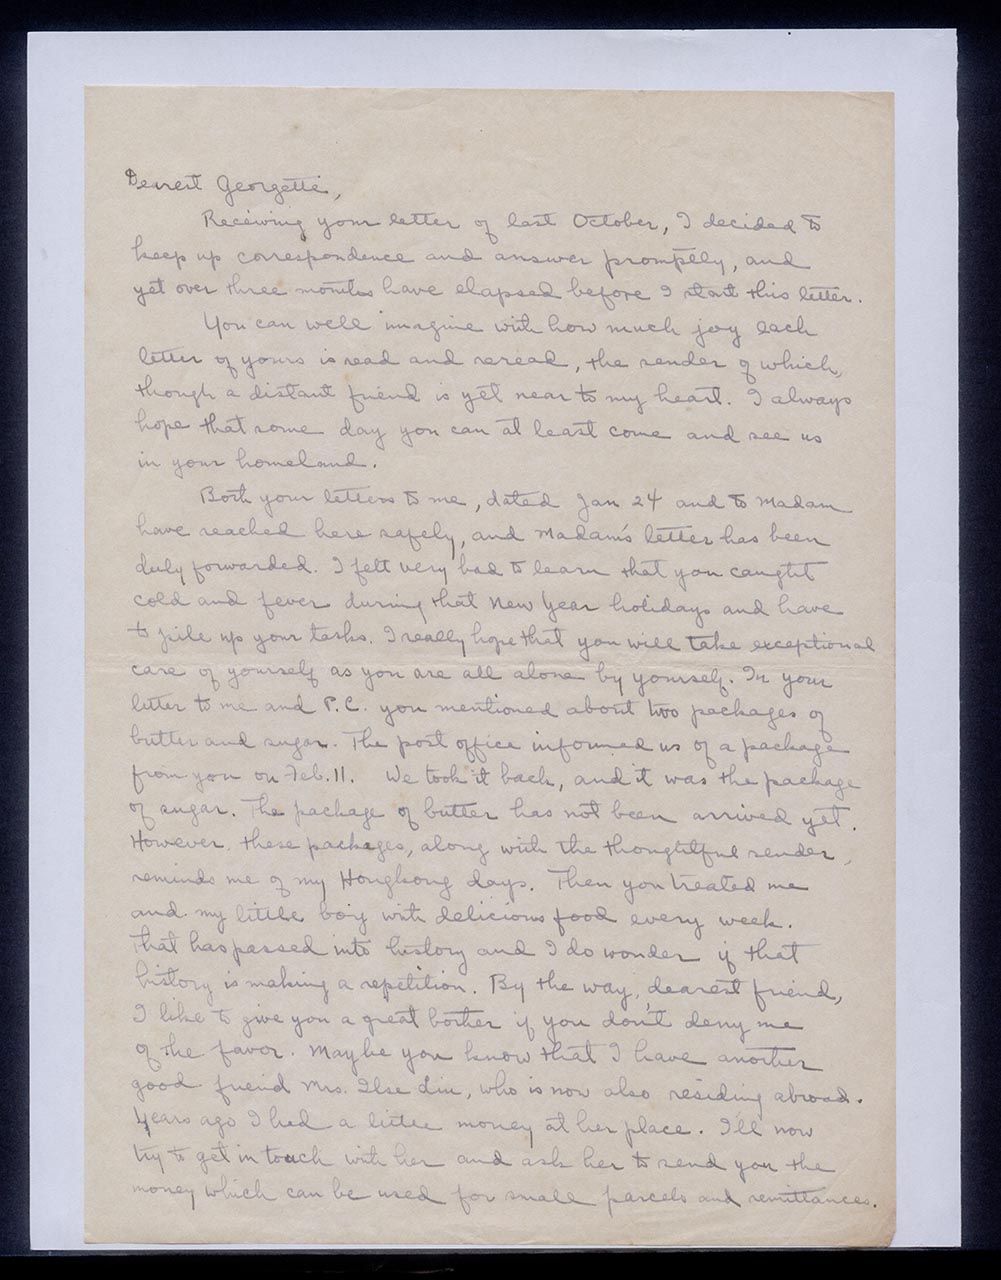 Dearest Georgette,
Receiving your letter of last October, I decided to
keep up correspondence and answer promptly, and
yet over three months have elapsed before I start this letter.
You can well imagine with how much joy each
letter of yours is read and reread, the sender of which,
though a distant friend is yet near to my heart. I always
hope that some day you can at least come and see us
in your homeland.
Both your letters to me, dated Jan 24 and to Madam
have reached here safely, and Madam's letter has been
duly forwarded. I felt very bad to learn that you caught
cold and fever during that New Year holidays and have
to pile up your tasks. I really hope that you will take exceptional
care of yourself as you are all alone by yourself. In your
letter to me and P.C. you mentioned about two packages of
butter and sugar. The post office informed us of a package
from you on Feb. 11. We took it back, and it was the package
of sugar. The package of butter has not been arrived yet.
However, these packages, along with the thoughtful sender,
reminds me of my Hongkong days. Then you treated me
and my little boy with delicious food every week.
That has passed into history and I do wonder if that
history is making a repetition. By the way, dearest friend,
I like to give you a great bother if you don't deny me
of the favor. Maybe you know that I have another
good friend Mrs. Ilse Liu, who is now also residing abroad.
Years ago I had a little money at her place. I'll now
try to get in touch with her and ask her to send you the
money which can be used for small parcels and remittances.